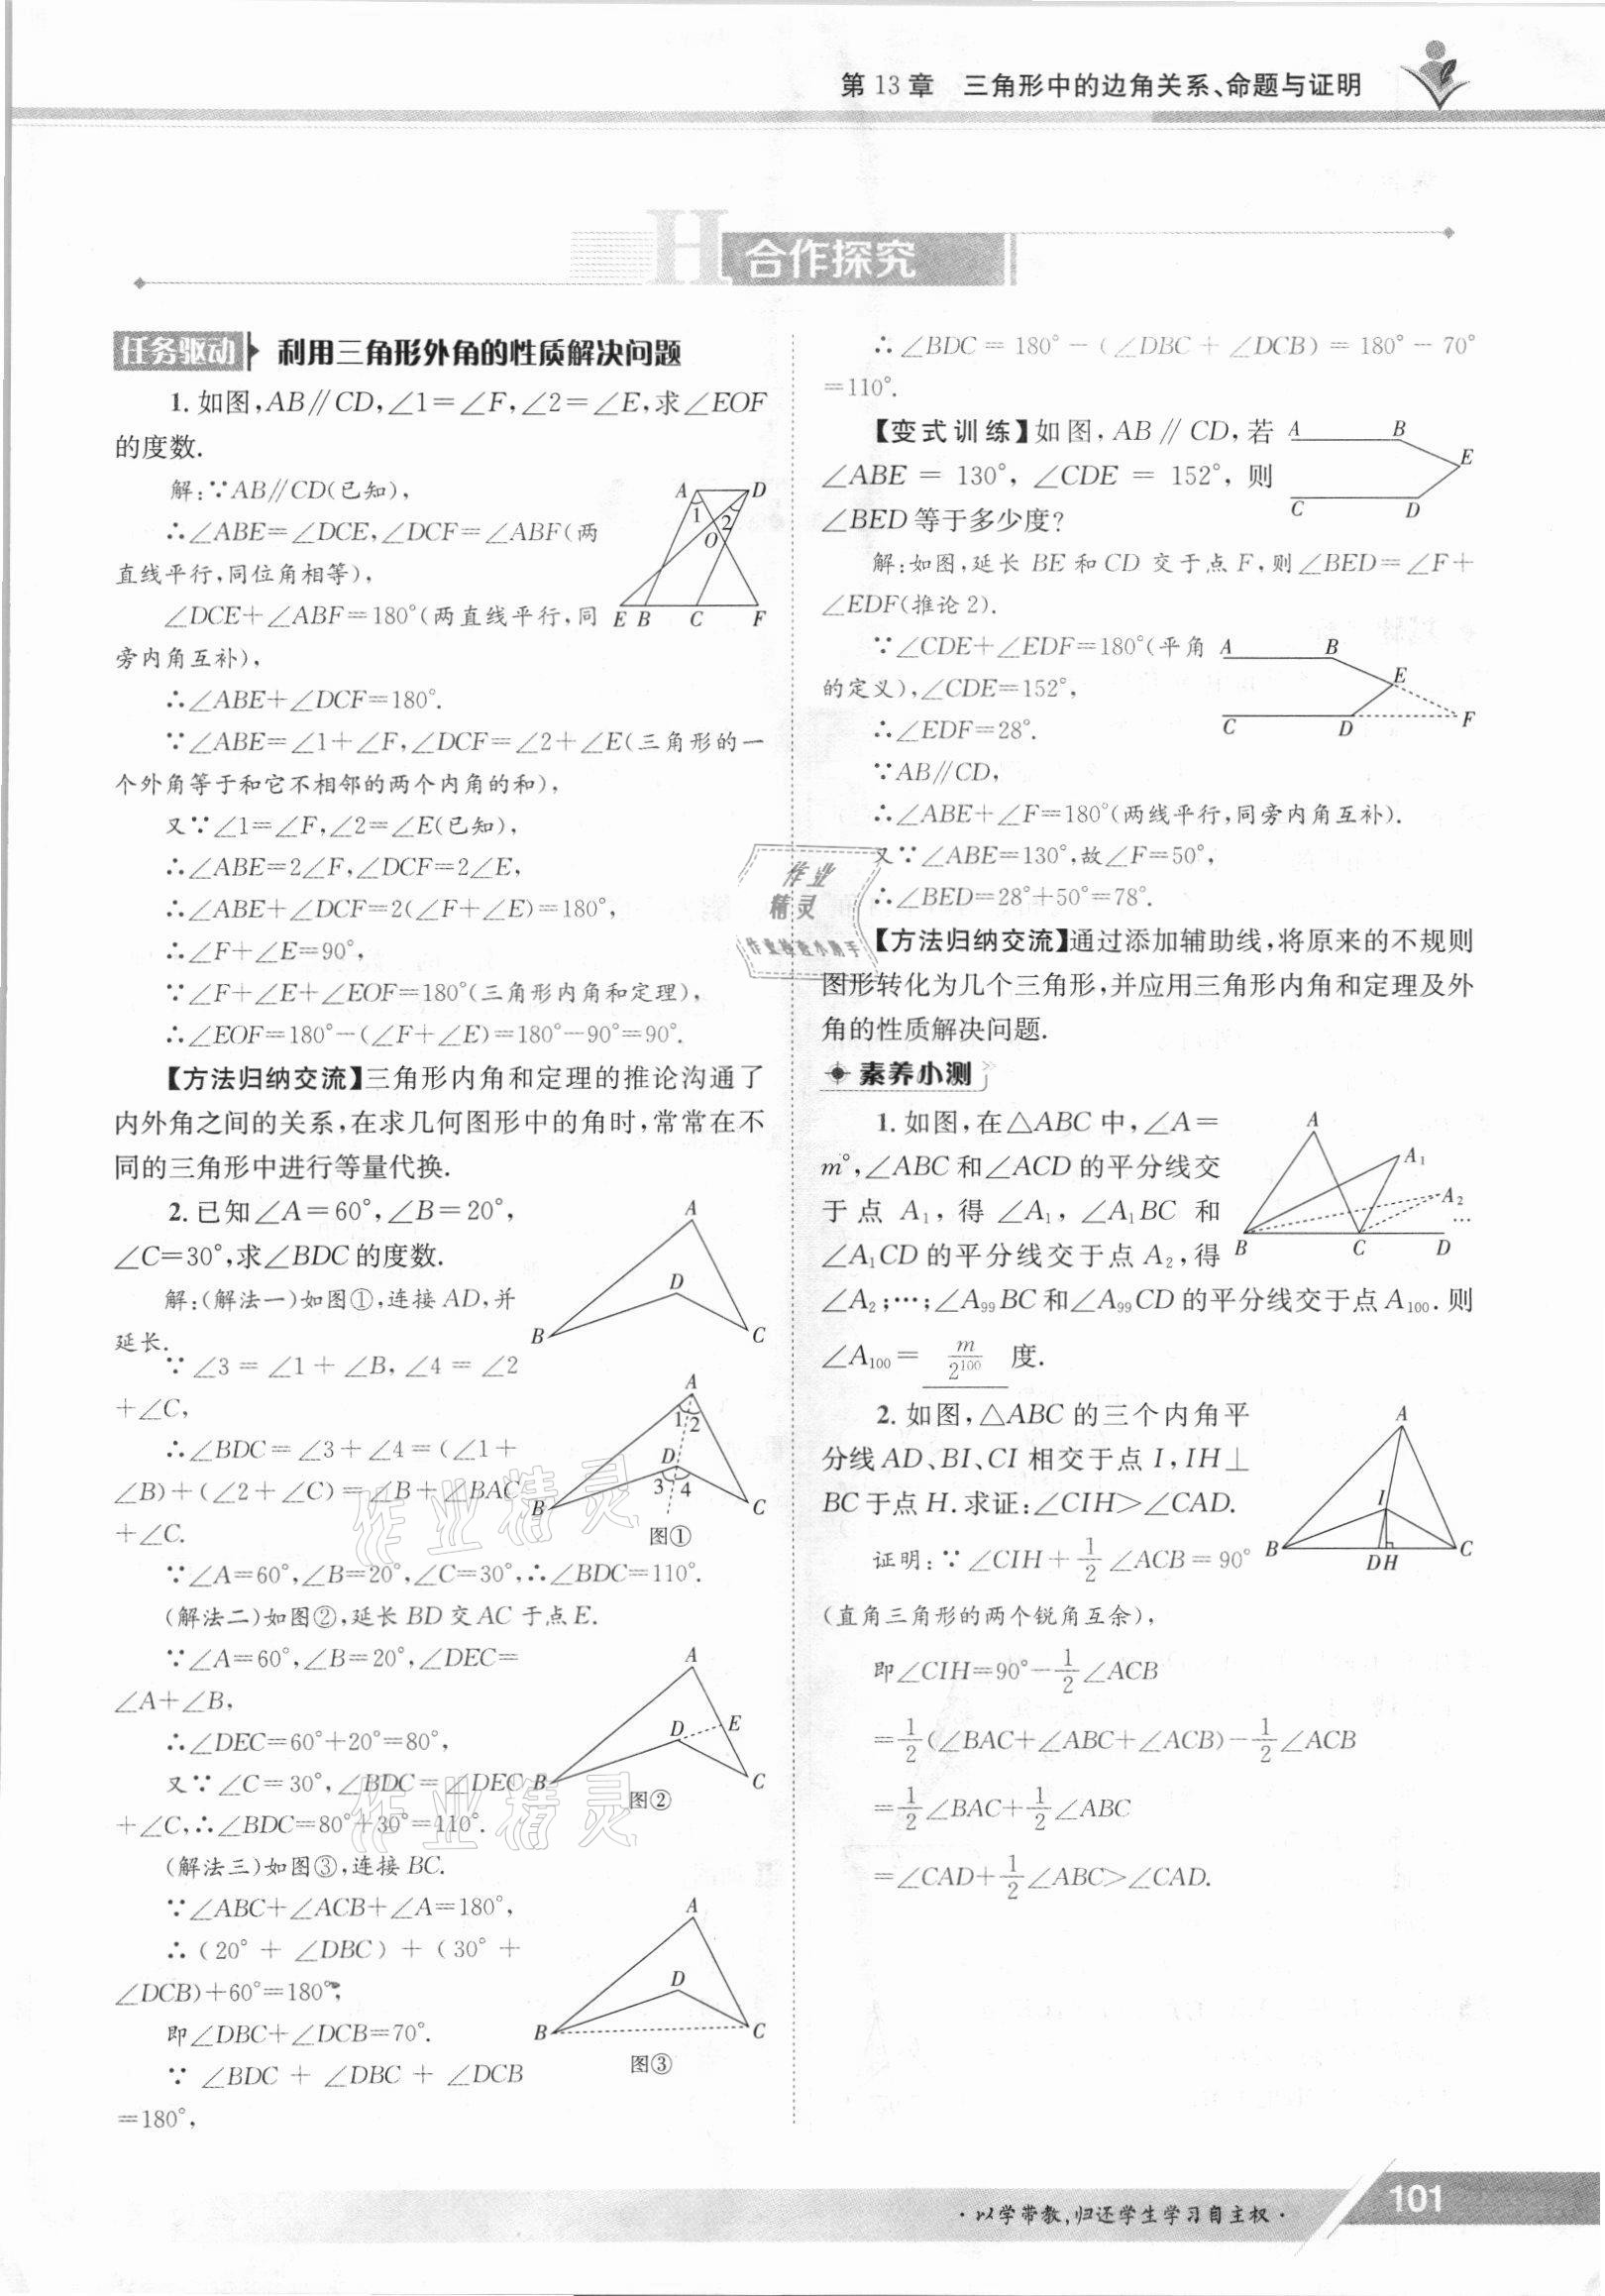 第13章 三角形中的边角关系、命题与证明
H 合作探究
任务驱动 利用三角形外角的性质解决问题
1. 如图,AB∥CD,∠1=∠F,∠2=∠E,求∠EOF
的度数.
解:∵AB∥CD(已知),
∴∠ABE=∠DCE,∠DCF=∠ABF(两
直线平行,同位角相等),
∠DCE+∠ABF=180°(两直线平行,同
旁内角互补),
A D
1 2
O
E B C F
∴∠ABE+∠DCF=180°.
∵∠ABE=∠1+∠F,∠DCF=∠2+∠E(三角形的一
个外角等于和它不相邻的两个内角的和),
又∵∠1=∠F,∠2=∠E(已知),
∴∠ABE=2∠F,∠DCF=2∠E,
∴∠ABE+∠DCF=2(∠F+∠E)=180°,
∴∠F+∠E=90°,
∵∠F+∠E+∠EOF=180°(三角形内角和定理),
∴∠EOF=180°-(∠F+∠E)=180°-90°=90°.
【方法归纳交流】三角形内角和定理的推论沟通了
内外角之间的关系,在求几何图形中的角时,常常在不
同的三角形中进行等量代换.
2. 已知∠A=60°,∠B=20°,
∠C=30°,求∠BDC的度数.
解:(解法一)如图①,连接AD,并
延长.
A
D
B C
∵∠3=∠1+∠B,∠4=∠2
+∠C,
∴∠BDC=∠3+∠4=(∠1+
∠B)+(∠2+∠C)=∠B+∠BAC
+∠C.
A
1 2
D
3 4
B C
图①
∵∠A=60°,∠B=20°,∠C=30°,∴∠BDC=110°.
(解法二)如图②,延长BD交AC于点E.
∵∠A=60°,∠B=20°,∠DEC=
∠A+∠B,
∴∠DEC=60°+20°=80°,
又∵∠C=30°,∠BDC=∠DEC
+∠C,∴∠BDC=80°+30°=110°.
A
D E
B C
图②
(解法三)如图③,连接BC.
∵∠ABC+∠ACB+∠A=180°,
∴(20°+∠DBC)+(30°+
∠DCB)+60°=180°,
即∠DBC+∠DCB=70°.
∵∠BDC+∠DBC+∠DCB
=180°,
A
D
B C
图③
∴∠BDC=180°-(∠DBC+∠DCB)=180°-70°
=110°.
【变式训练】如图,AB∥CD,若
∠ABE=130°,∠CDE=152°,则
∠BED等于多少度?
A B
E
C D
解:如图,延长BE和CD交于点F,则∠BED=∠F+
∠EDF(推论2).
∵∠CDE+∠EDF=180°(平角
的定义),∠CDE=152°,
∴∠EDF=28°.
A B
E
C D F
∵AB∥CD,
∴∠ABE+∠F=180°(两线平行,同旁内角互补).
又∵∠ABE=130°,故∠F=50°,
∴∠BED=28°+50°=78°.
【方法归纳交流】通过添加辅助线,将原来的不规则
图形转化为几个三角形,并应用三角形内角和定理及外
角的性质解决问题.
素养小测
1. 如图,在△ABC中,∠A=
m°,∠ABC和∠ACD的平分线交
于点A₁,得∠A₁,∠A₁BC和
∠A₁CD的平分线交于点A₂,得
∠A₂;…;∠A₉₉BC和∠A₉₉CD的平分线交于点A₁₀₀.则
∠A₁₀₀= m/2¹⁰⁰ 度.
A
A₁
A₂
…
B C D
2. 如图,△ABC的三个内角平
分线AD、BI、CI相交于点I,IH⊥
BC于点H.求证:∠CIH>∠CAD.
A
I
B DH C
证明:∵∠CIH+1/2∠ACB=90°
(直角三角形的两个锐角互余),
即∠CIH=90°-1/2∠ACB
=1/2(∠BAC+∠ABC+∠ACB)-1/2∠ACB
=1/2∠BAC+1/2∠ABC
=∠CAD+1/2∠ABC>∠CAD.
作业
精灵
作业检查小助手
作业精灵
作业精灵
·以学带教,归还学生学习自主权·
101